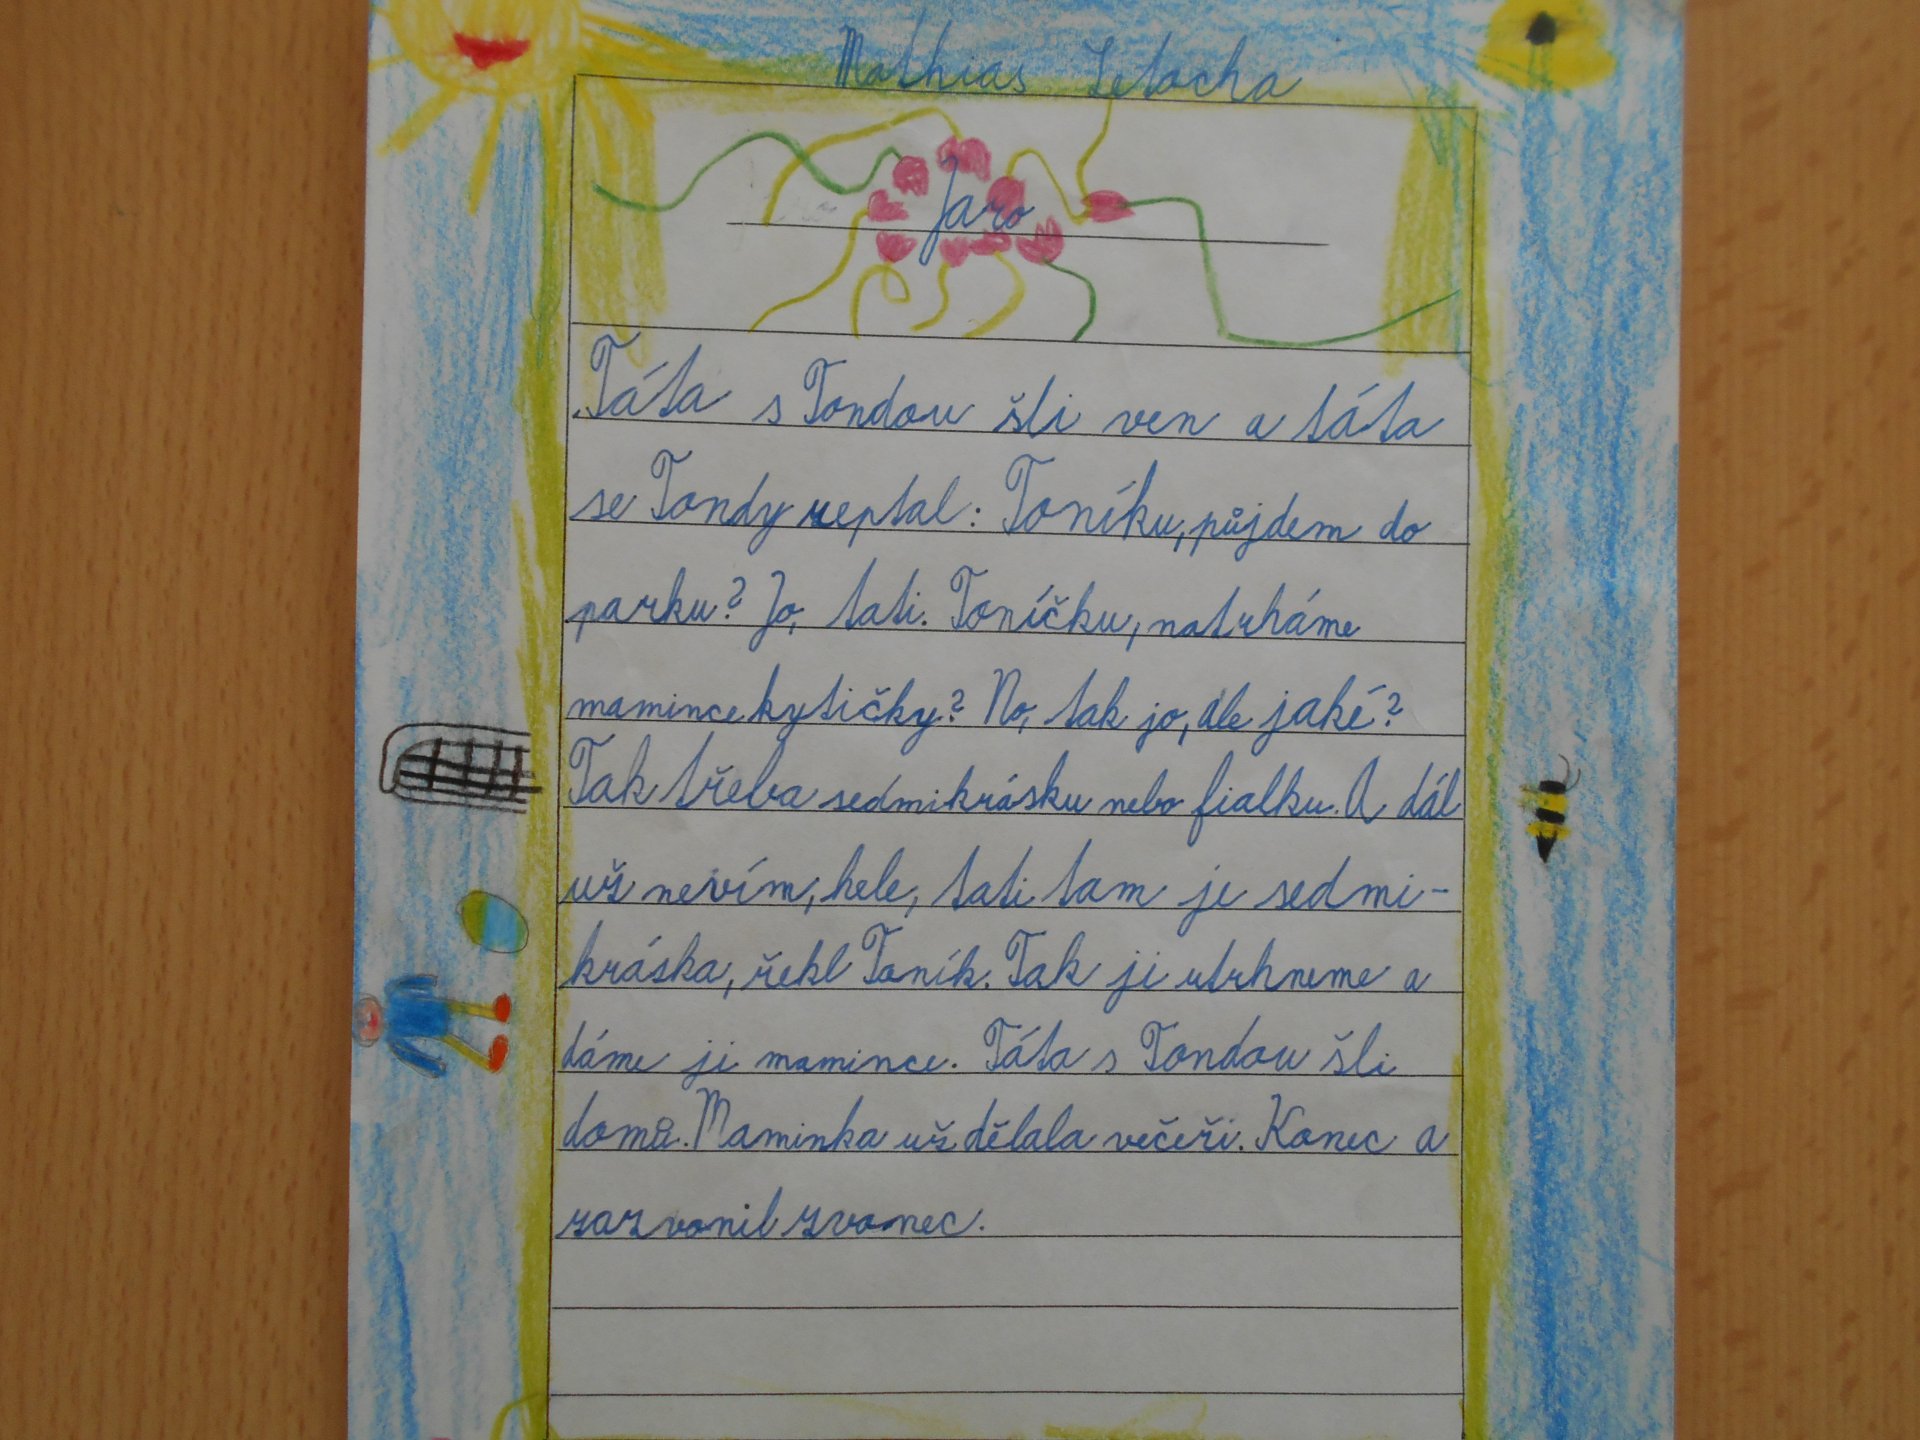 Mathias Letocha
Jaro
Táta s Tondou šli ven a táta
se Tondy zeptal: Toníku, půjdem do
parku? Jo, tati. Toníčku, natrháme
mamince kytičky? No, tak jo, ale jaké?
Tak třeba sedmikrásku nebo fialku. A dál
už nevím, hele, tati tam je sedmi-
kráska, řekl Toník. Tak ji utrhneme a
dáme ji mamince. Táta s Tondou šli
domů. Maminka už dělala večeři. Konec a
zazvonil zvonec.